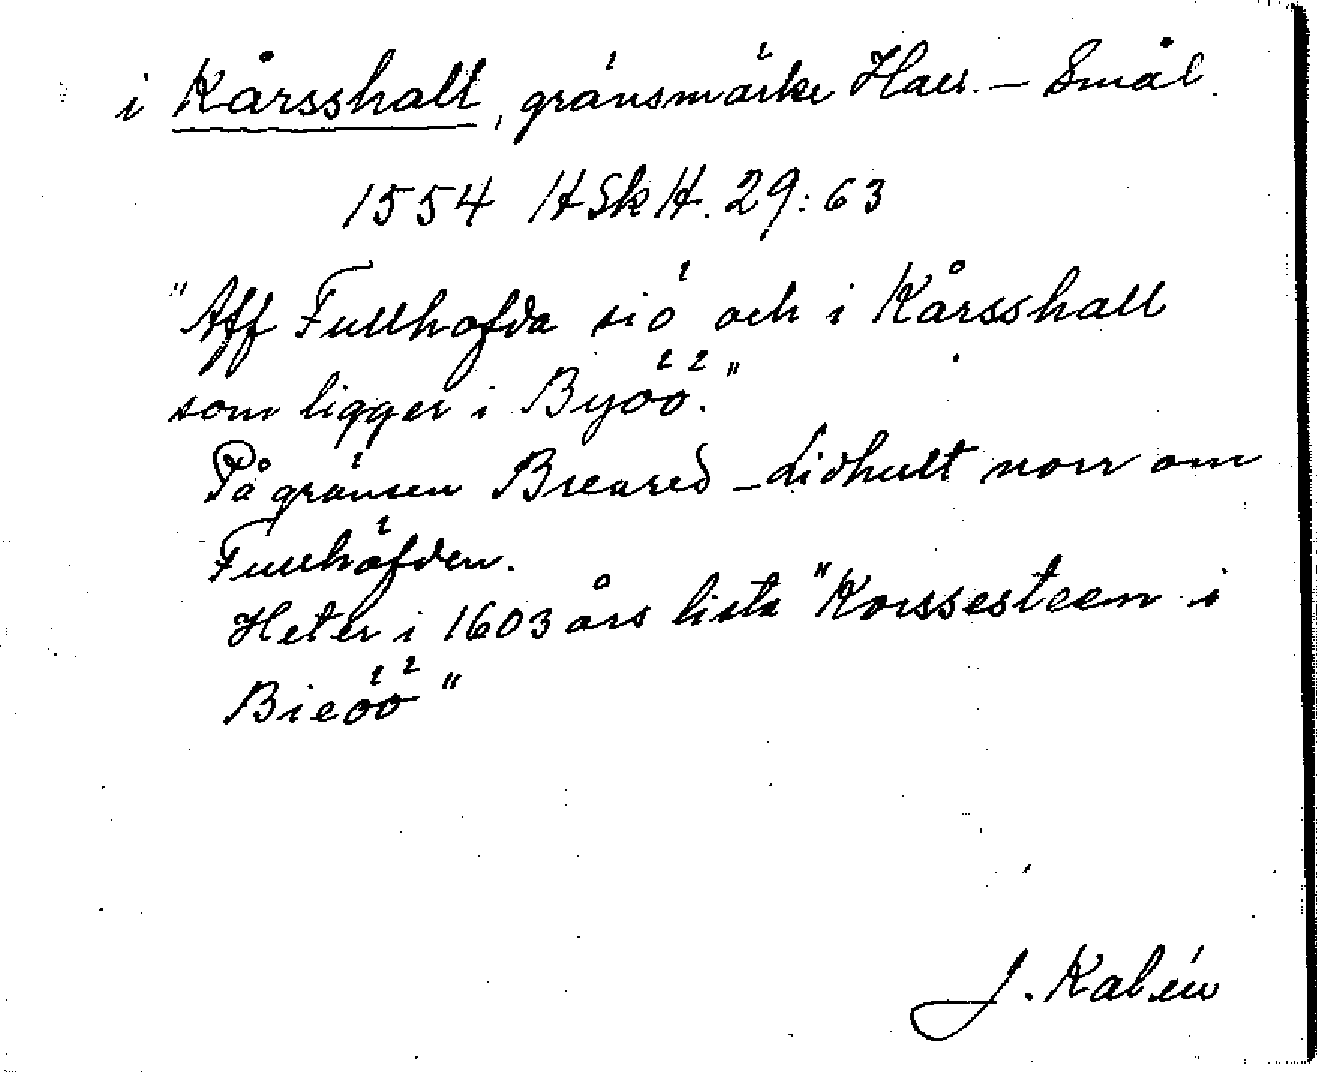 i Kårsshall, gränsmärke Hall. – Smål.
1554 HSkH. 29:63
"Aff Fullhofda siö och i Kårsshall
som ligger i Byöö."
På gränsen Breared – Lidhult norr om
Fullhöfden.
Heter i 1603 års lista "Korssesteen i
Bieöö"
J. Kalén